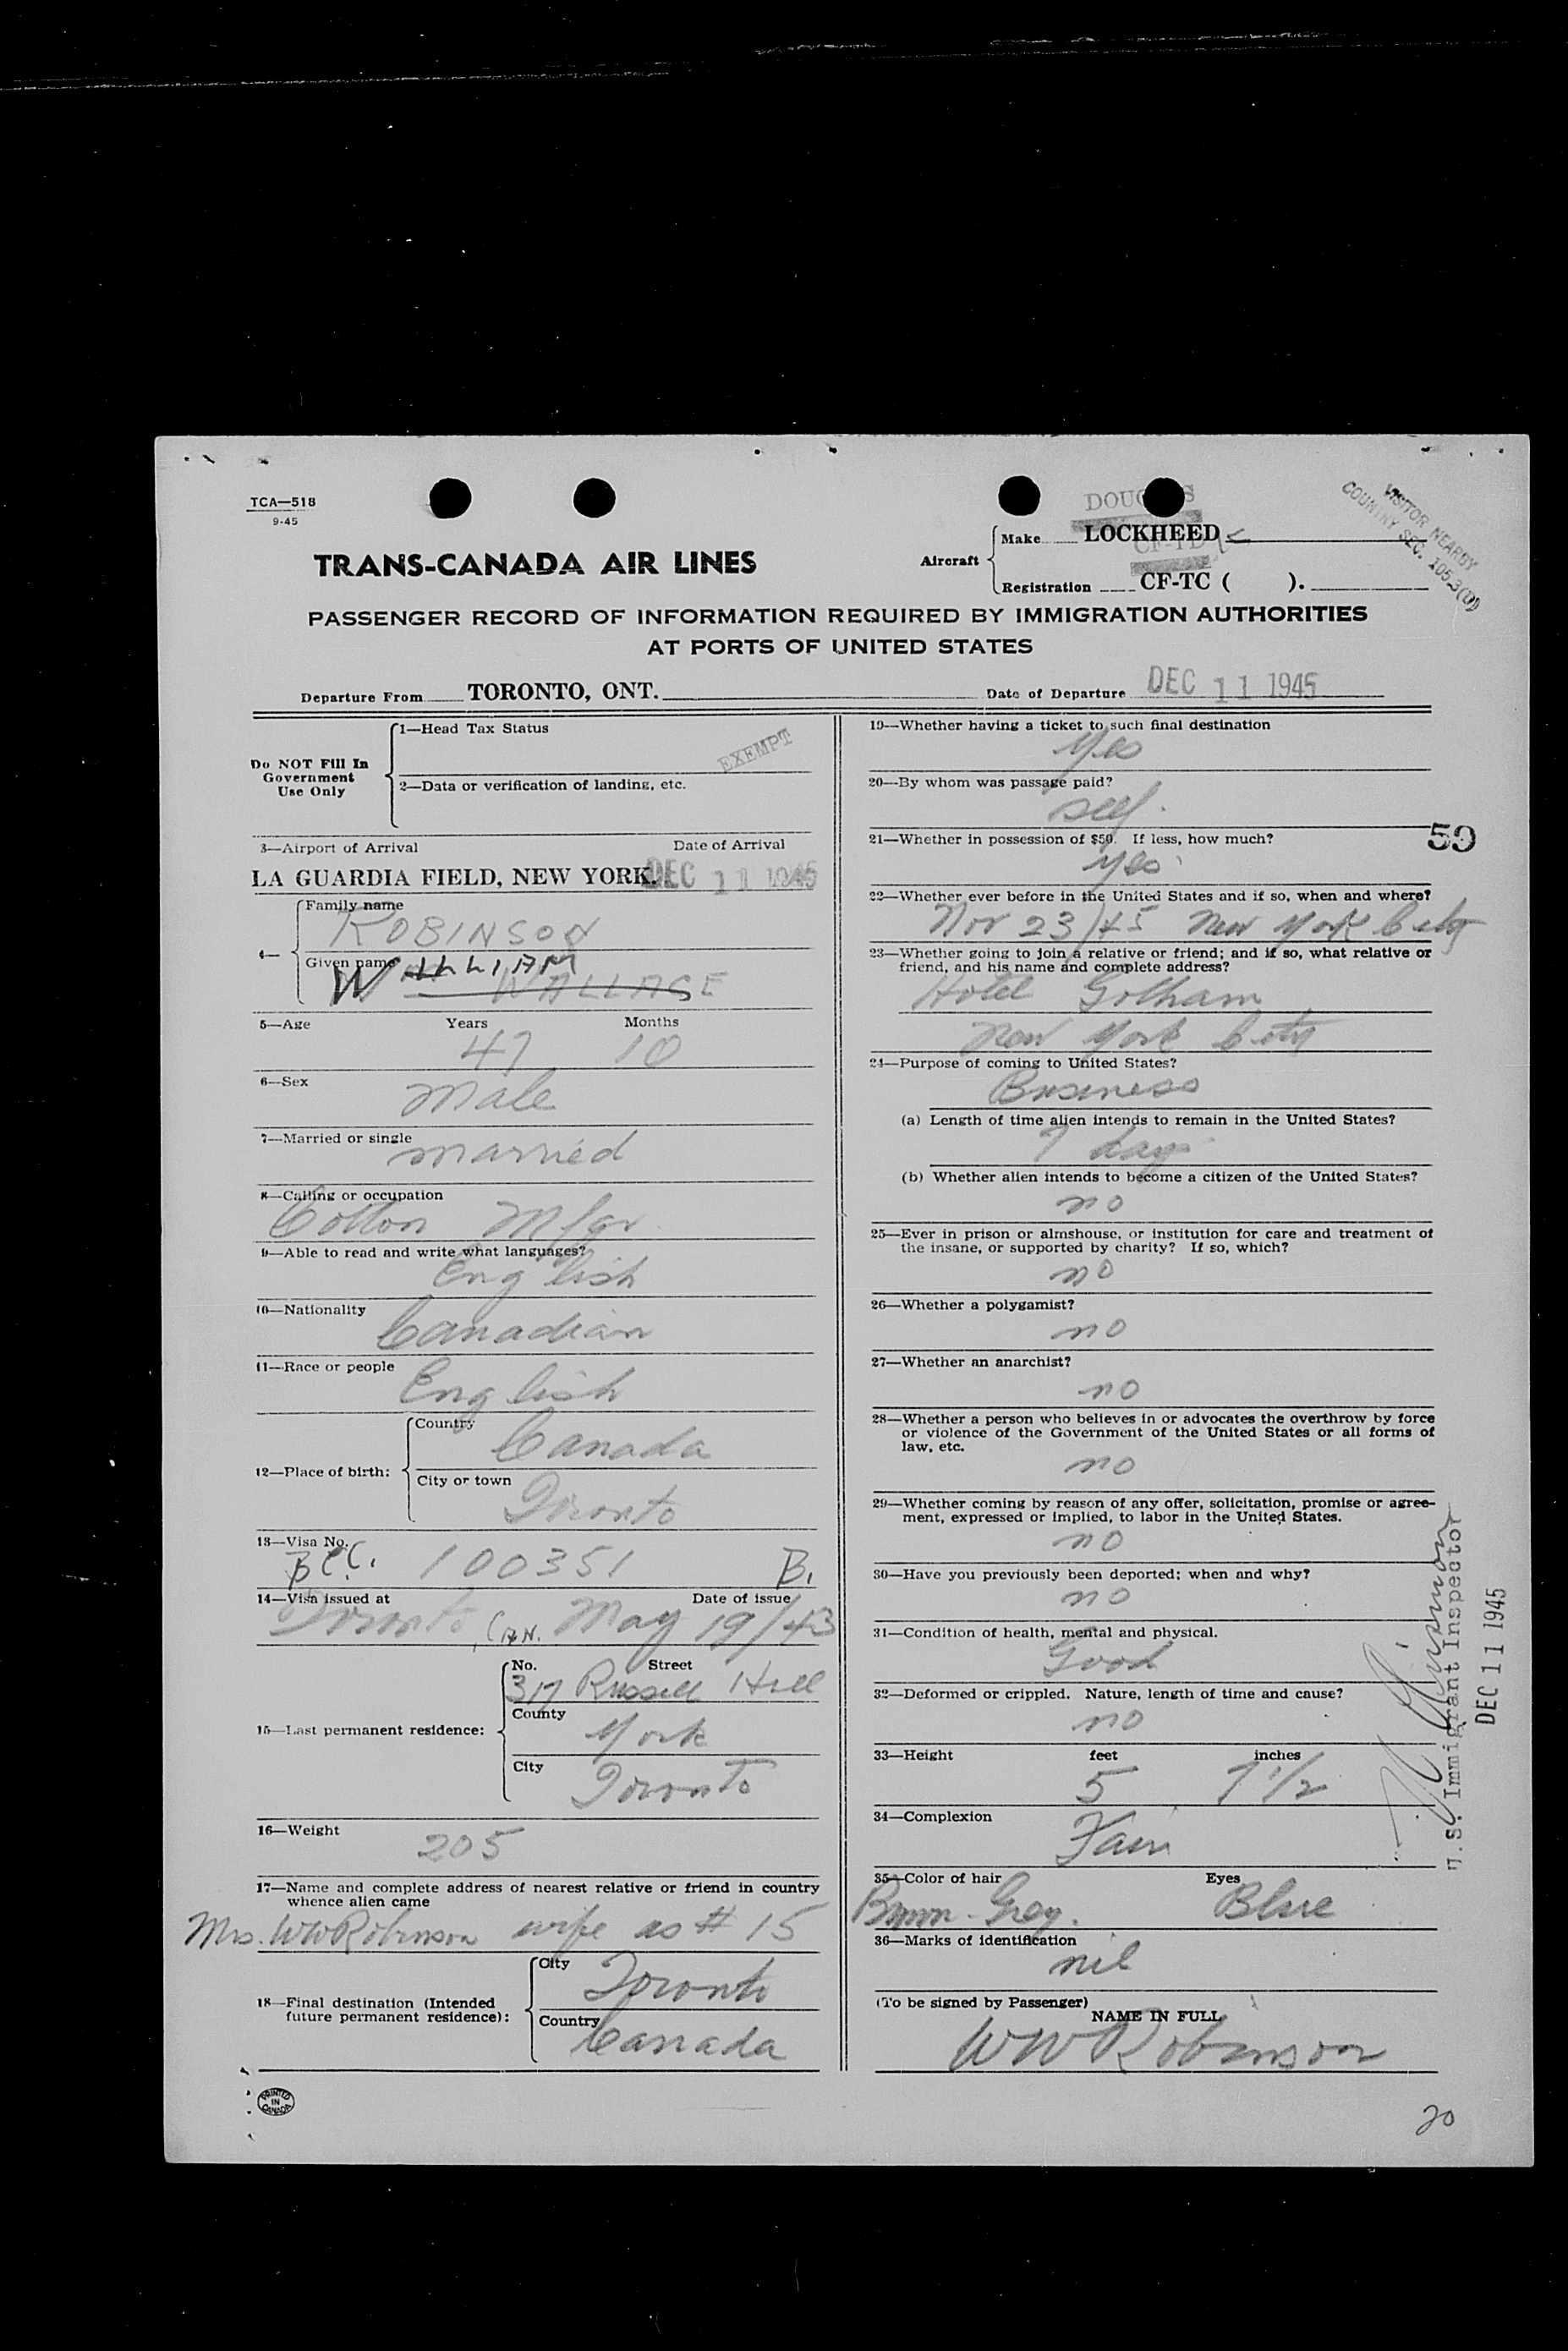 TCA—518
9-45
VISITOR NEARBY
COUNTRY SEC. 105.3(D)
TRANS-CANADA AIR LINES
Aircraft
Make LOCKHEED
Registration CF-TC ( ).
PASSENGER RECORD OF INFORMATION REQUIRED BY IMMIGRATION AUTHORITIES
AT PORTS OF UNITED STATES
Departure From TORONTO, ONT. Date of Departure DEC 11 1945
Do NOT Fill In
Government
Use Only
1—Head Tax Status
EXEMPT
2—Data or verification of landing, etc.
3—Airport of Arrival Date of Arrival
LA GUARDIA FIELD, NEW YORK. DEC 11 1945
4—
Family name
ROBINSON
Given name
WILLIAM
WALLACE
5—Age Years Months
47 10
6—Sex
Male
7—Married or single
married
8—Calling or occupation
Cotton Mfgr
9—Able to read and write what languages?
English
10—Nationality
Canadian
11—Race or people
English
12—Place of birth:
Country
Canada
City or town
Toronto
13—Visa No.
B.C.C. 100351 B.
14—Visa issued at Date of issue
Toronto, CAN. May 19/43
15—Last permanent residence:
No. Street
317 Russell Hill
County
York
City
Toronto
16—Weight
205
17—Name and complete address of nearest relative or friend in country
whence alien came
Mrs. WW Robinson wife as # 15
18—Final destination (Intended
future permanent residence):
City
Toronto
Country
Canada
PRINTED
IN
CANADA
19—Whether having a ticket to such final destination
Yes
20—By whom was passage paid?
self.
21—Whether in possession of $50. If less, how much?
59
yes
22—Whether ever before in the United States and if so, when and where?
Nov 23/45 New York City
23—Whether going to join a relative or friend; and if so, what relative or
friend, and his name and complete address?
Hotel Gotham
New York City
24—Purpose of coming to United States?
Business
(a) Length of time alien intends to remain in the United States?
7 days
(b) Whether alien intends to become a citizen of the United States?
no
25—Ever in prison or almshouse, or institution for care and treatment of
the insane, or supported by charity? If so, which?
no
26—Whether a polygamist?
no
27—Whether an anarchist?
no
28—Whether a person who believes in or advocates the overthrow by force
or violence of the Government of the United States or all forms of
law, etc.
no
29—Whether coming by reason of any offer, solicitation, promise or agree-
ment, expressed or implied, to labor in the United States.
no
30—Have you previously been deported; when and why?
no
31—Condition of health, mental and physical.
Good
32—Deformed or crippled. Nature, length of time and cause?
no
33—Height feet inches
5 7 1/2
34—Complexion
Fair
35—Color of hair Eyes
Brown-Grey. Blue
36—Marks of identification
nil
(To be signed by Passenger)
NAME IN FULL
WW Robinson
U.S. Immigrant Inspector
DEC 11 1945
20